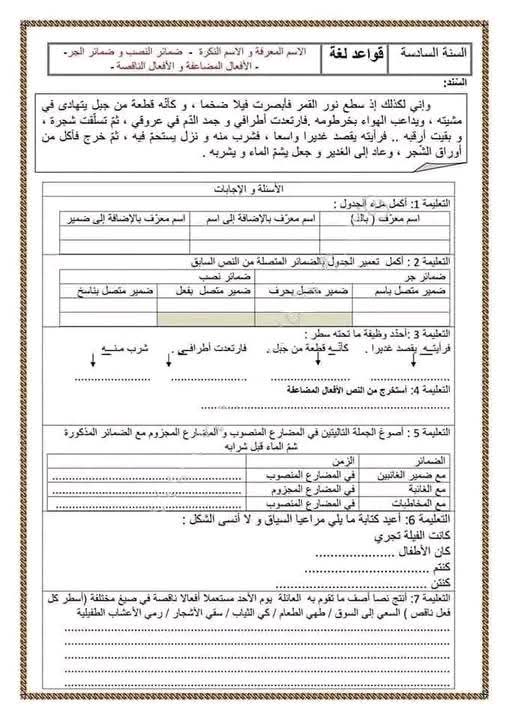 السنة السادسة
قواعد لغة
الاسم المعرفة و الاسم النكرة - ضمائر النصب و ضمائر الجر-
- الأفعال المضاعفة و الأفعال الناقصة -
السّند:
وإني لكذلك إذ سطع نور القمر فأبصرت فيلا ضخما ، و كأنّه قطعة من جبل يتهادى في
مشيته ، ويداعب الهواء بخرطومه .فارتعدت أطرافي و جمد الدّم في عروقي ، ثمّ تسلّقت شجرة ،
و بقيت أرقبه .. فرأيته يقصد غديرا واسعا ، فشرب منه و نزل يستحمّ فيه ، ثمّ خرج فأكل من
أوراق الشّجر ، وعاد إلى الغدير و جعل يشمّ الماء و يشربه .
الأسئلة و الإجابات
التعليمة 1: أكمل ملء الجدول :
اسم معرّف ( بالـ)
اسم معرّف بالإضافة إلى اسم
اسم معرّف بالإضافة إلى ضمير
التعليمة 2 : أكمل تعمير الجدول بالضمائر المتصلة من النص السابق
ضمائر جر
ضمائر نصب
ضمير متصل باسم
ضمير متصل بحرف
ضمير متصل بفعل
ضمير متصل بناسخ
التعليمة 3 :أحدّد وظيفة ما تحته سطر :
فرأيته يقصد غديرا . كأنّه قطعة من جبل . فارتعدت أطرافي . شرب منه
التعليمة 4: أستخرج من النص الأفعال المضاعفة
التعليمة 5 : أصوغ الجملة التاليتين في المضارع المنصوب و المضارع المجزوم مع الضمائر المذكورة
شمّ الماء قبل شرابه
الضمائر
الزمن
مع ضمير الغائبين
في المضارع المنصوب
مع الغائبة
في المضارع المجزوم
مع المخاطبات
في المضارع المنصوب
التعليمة 6: أعيد كتابة ما يلي مراعيا السياق و لا أنسى الشكل :
كانت الفيلة تجري
كان الأطفال
كنتم
كنتن
التعليمة 7: أنتج نصا أصف ما تقوم به العائلة يوم الأحد مستعملا أفعالا ناقصة في صيغ مختلفة (أسطر كل
فعل ناقص ) السعي إلى السوق / طهي الطعام / كي الثياب / سقي الأشجار / رمي الأعشاب الطفيلية